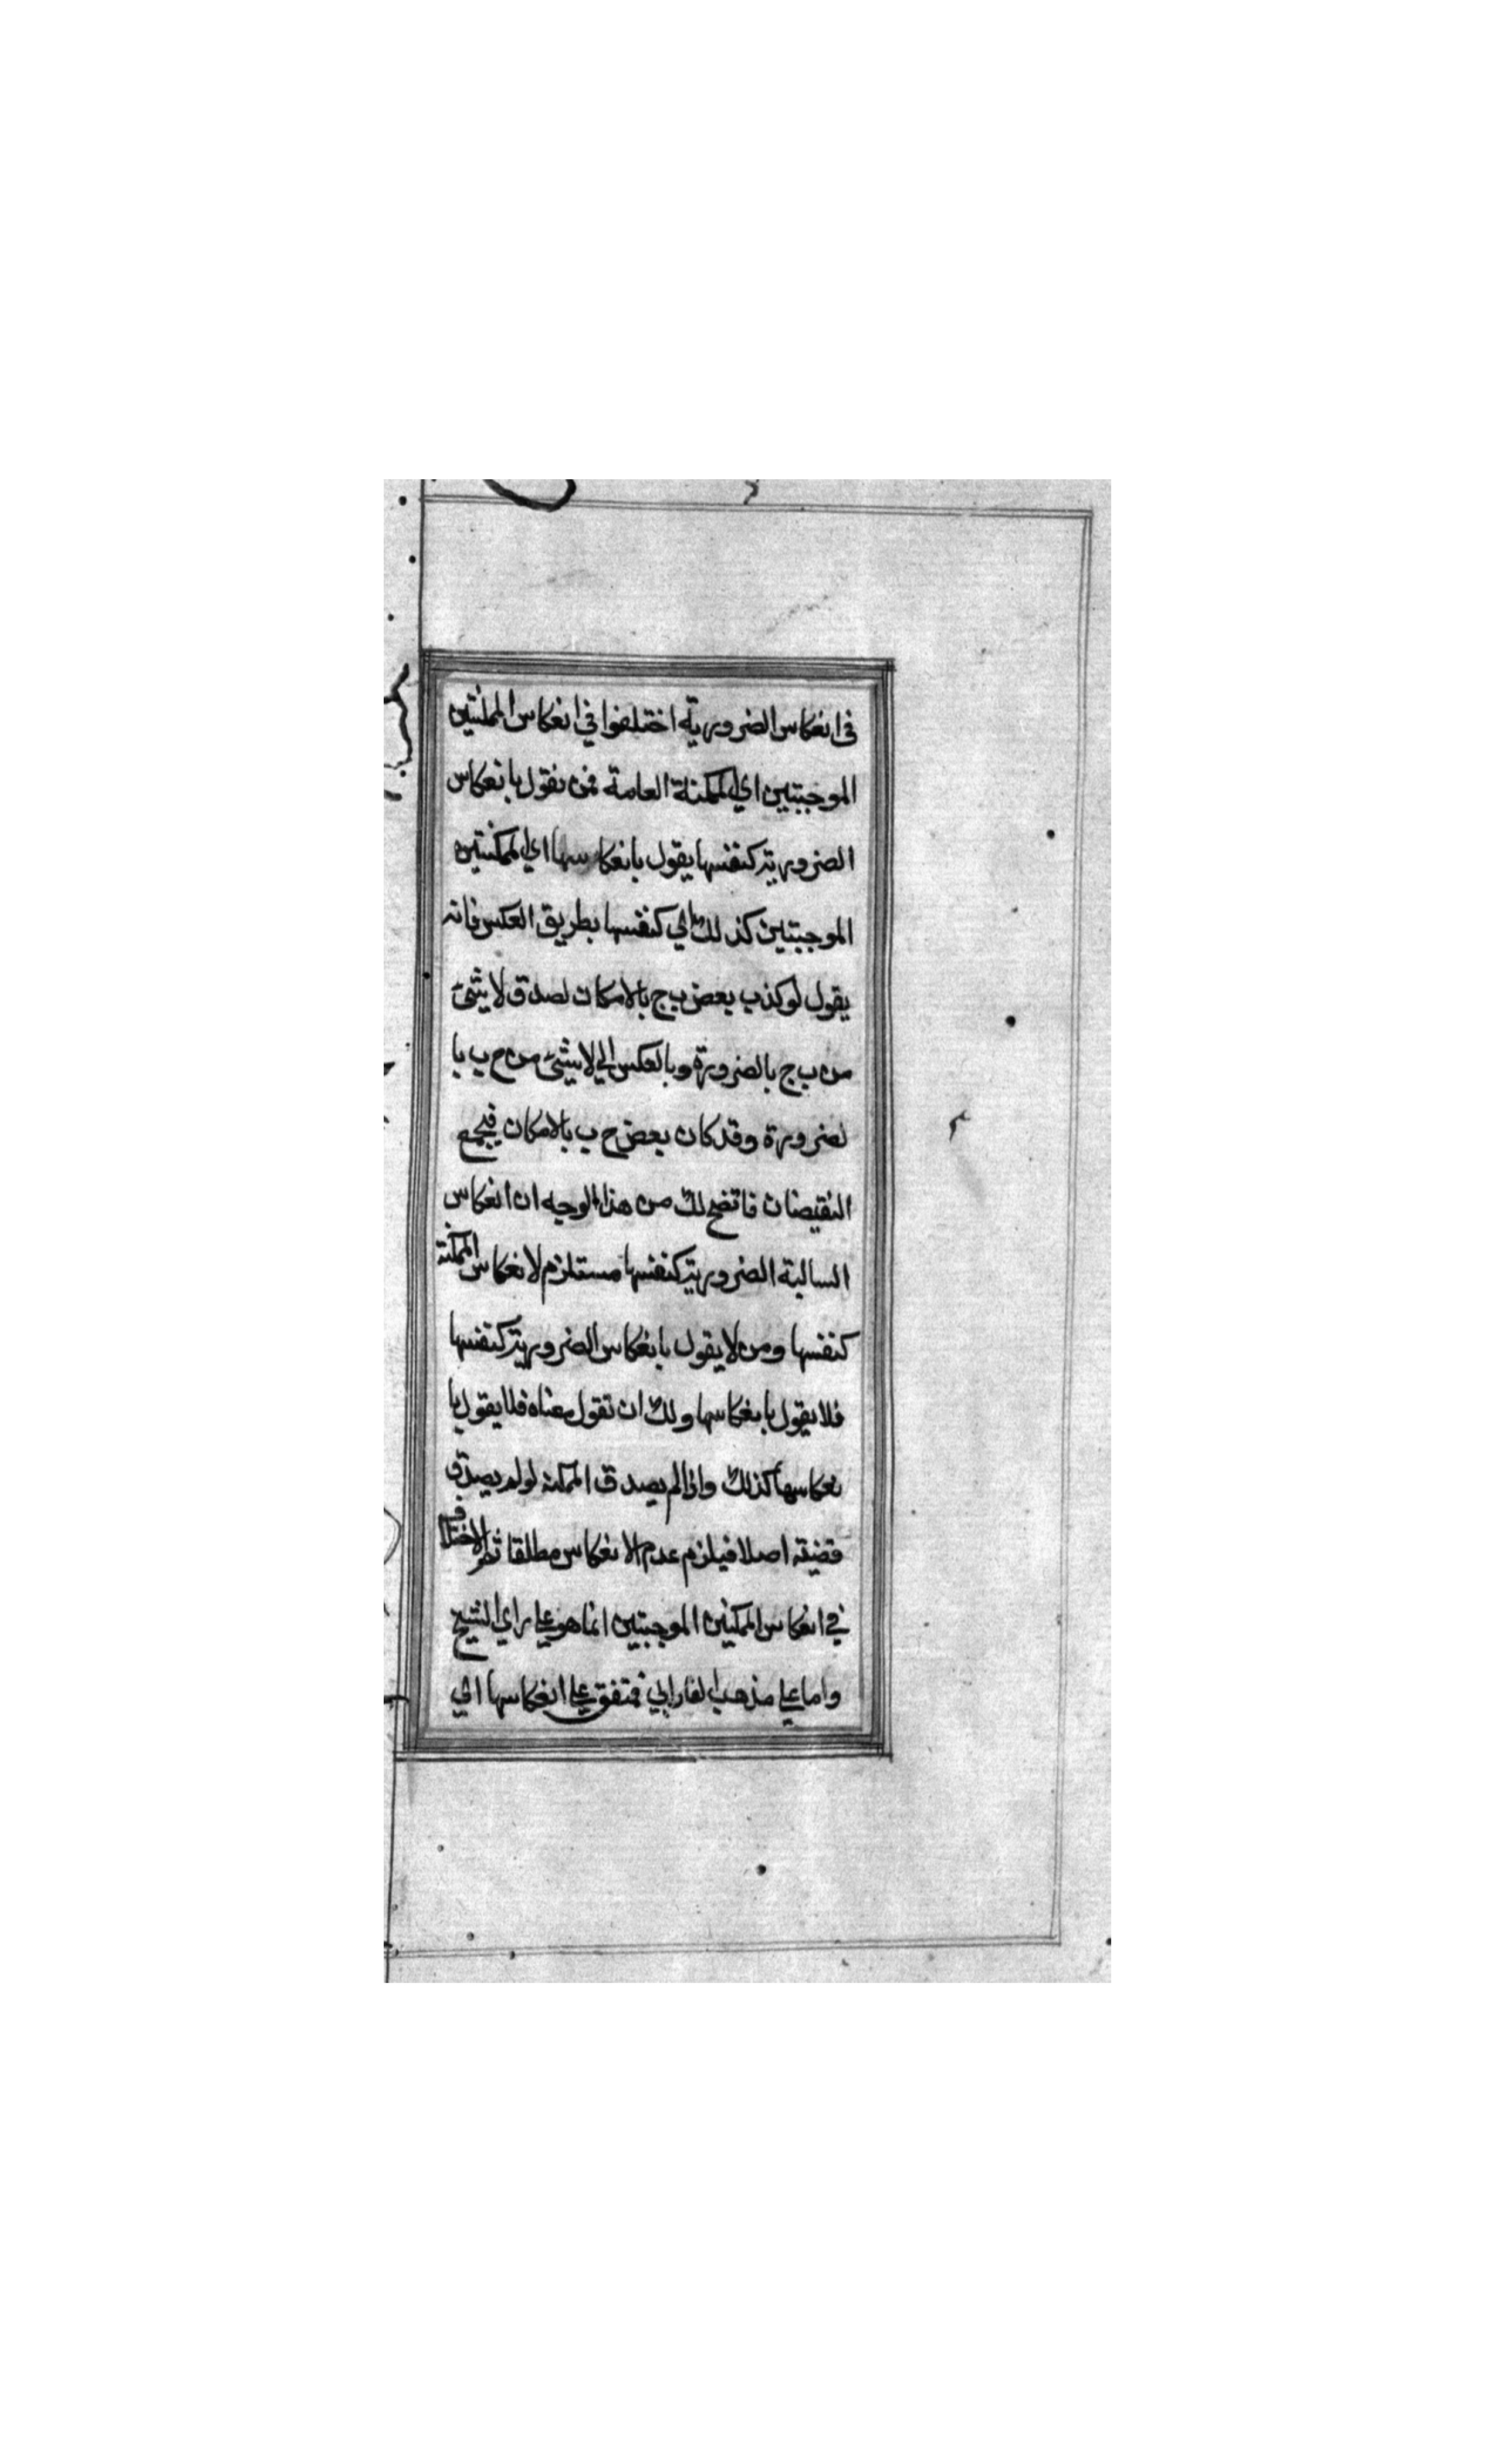 في انعكاس الضرورية اختلفوا في انعكاس الممكنتين
الموجبتين اي الممكنة العامة فمن يقول بانعكاس
الضرورية كنفسها يقول بانعكاسها اي الممكنتين
الموجبتين كذلك اي كنفسها بطريق العكس فانه
يقول لو كذب بعض ب ج بالامكان لصدق لا شئ
من ب ج بالضرورة وبالعكس الي لا شئ من ج ب با
لضرورة وقد كان بعض ج ب بالامكان فيجمع
النقيضان فاتضح لك من هذا الوجه ان انعكاس
السالبة الضرورية كنفسها مستلزم لانعكاس الممكنة
كنفسها ومن لا يقول بانعكاس الضرورية كنفسها
فلا يقول بانعكاسها ولك ان تقول معناه فلا يقول با
نعكاسها كذلك واذا لم يصدق الممكنة لو لم يصدق
قضية اصلا فيلزم عدم الانعكاس مطلقا ثم الاختلاف
في انعكاس الممكنين الموجبتين انما هو علي راي الشيخ
واما علي مذهب الفارابي فمتفق علي انعكاسها الي